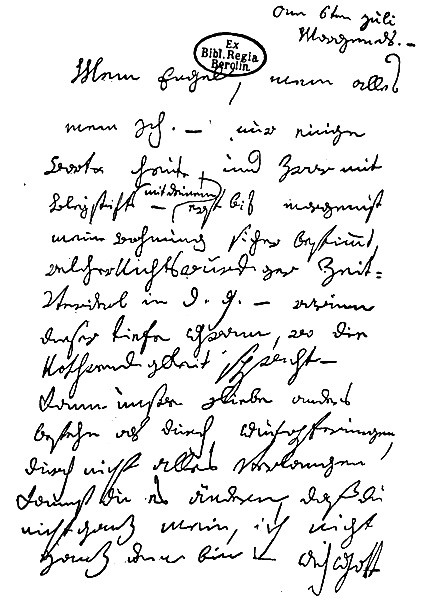 am 6ten juli
Morgends. –
Ex
Bibl. Regia
Berolin
Mein Engel, mein alles
mein Ich. – nur einige
Worte heute, und zwar mit
Bleystift – (mit deinem) erst bis morgen ist
meine wohnung sicher bestimmt,
welcher Nichtswürdiger Zeit-
Verderb in d. g. – warum
dieser tiefe Gram, wo die
Nothwendigkeit spricht –
Kann unsre Liebe anders
bestehn als durch Aufopferungen,
durch nicht alles verlangen,
kannst du es ändern, daß du
nicht ganz mein, ich nicht
ganz dein bin – Ach Gott